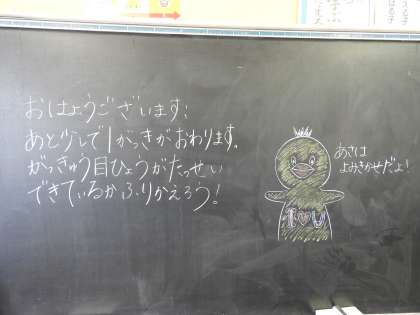 おはようございます。
あと少しで1がっきがおわります。
がっきゅう目ひょうがたっせい
できているかふりかえろう!
あさは
よみきかせだよ!
I♡U